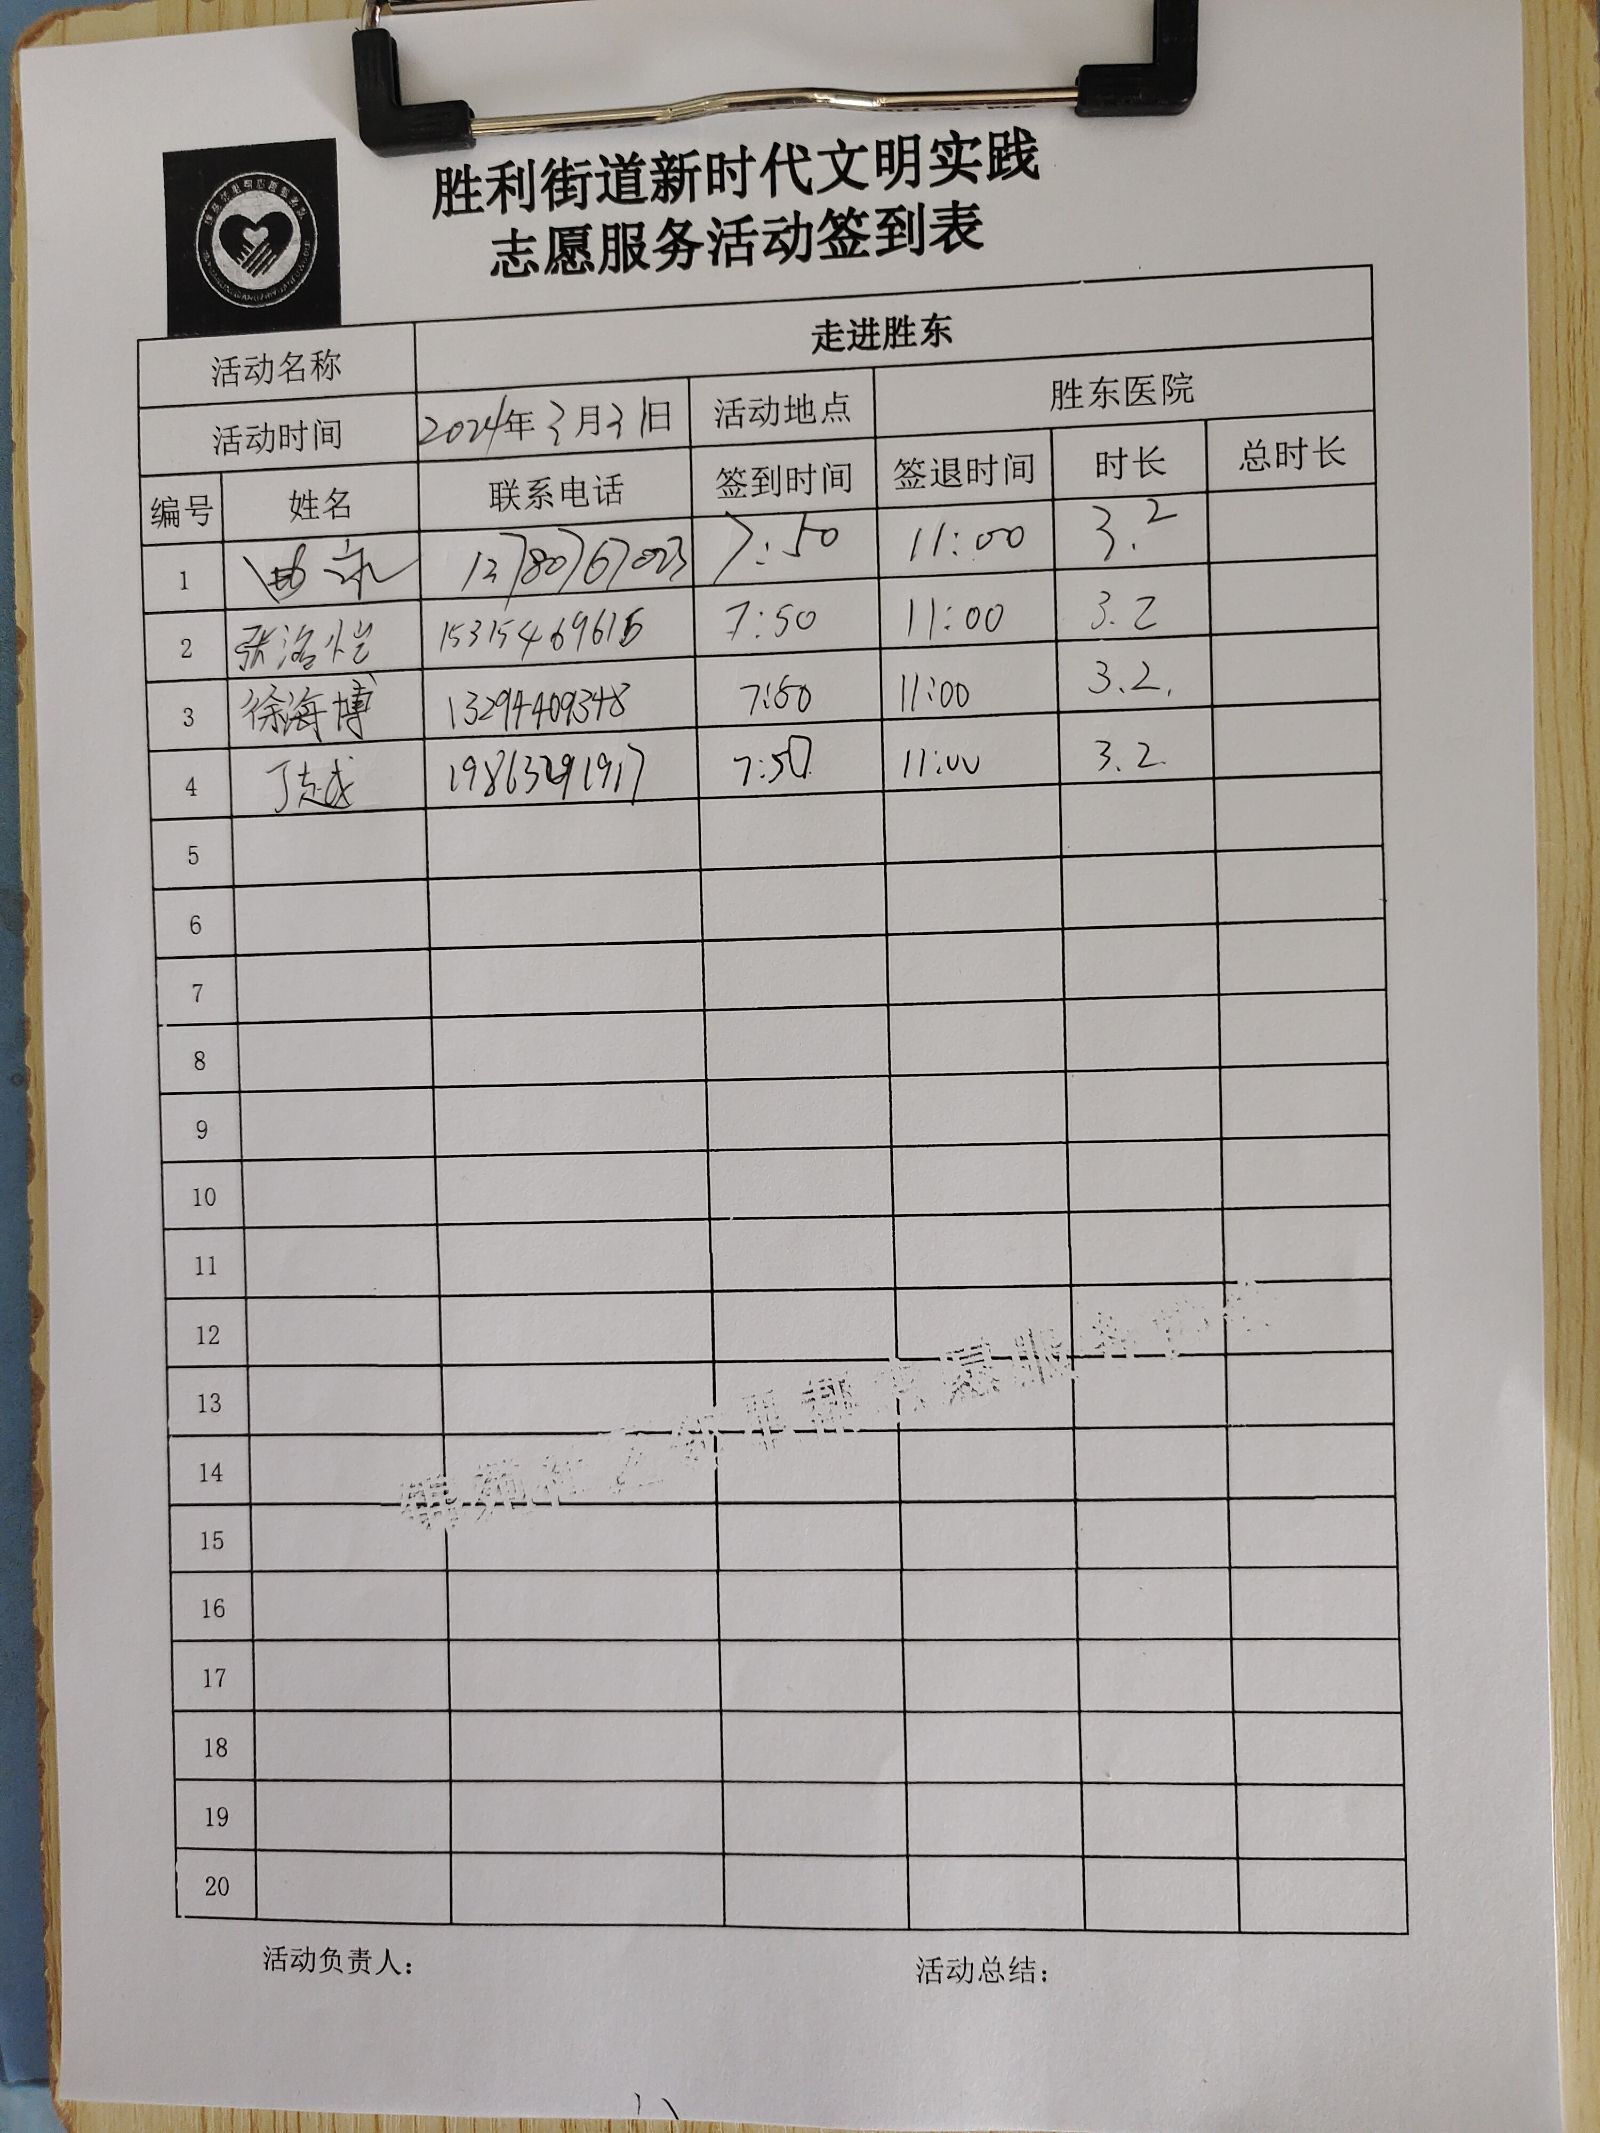 胜利街道新时代文明实践
志愿服务活动签到表
活动名称 走进胜东
活动时间 2024年3月31日 活动地点 胜东医院
编号 姓名 联系电话 签到时间 签退时间 时长 总时长
1 13780767023 7:50 11:00 3.2
2 张洛恺 15315469616 7:50 11:00 3.2
3 徐海博 13294409348 7:50 11:00 3.2.
4 丁志成 19863291917 7:50 11:00 3.2.
5
6
7
8
9
10
11
12
13
14
15
16
17
18
19
20
活动负责人： 活动总结：